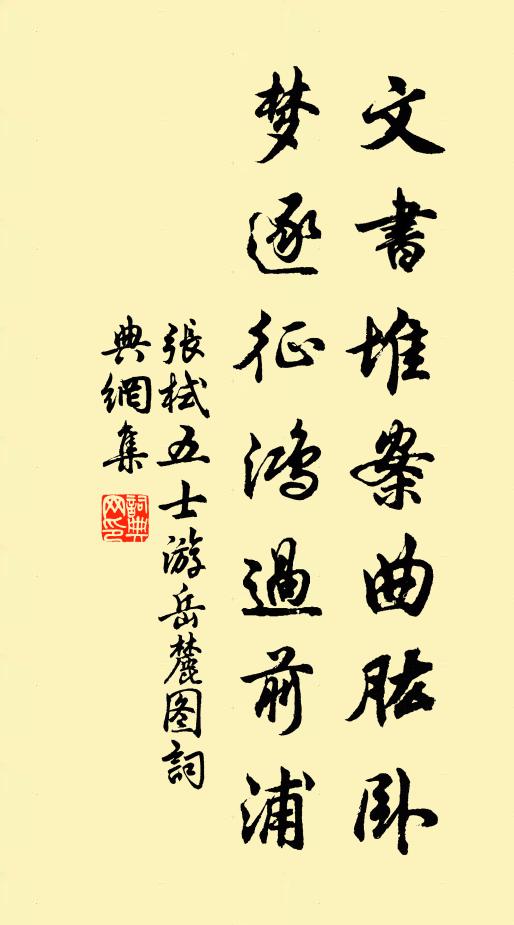 文書堆案曲肱卧
梦逐征鴻過前浦
張栻五士游岳麓图詞
典網集
詞典网印